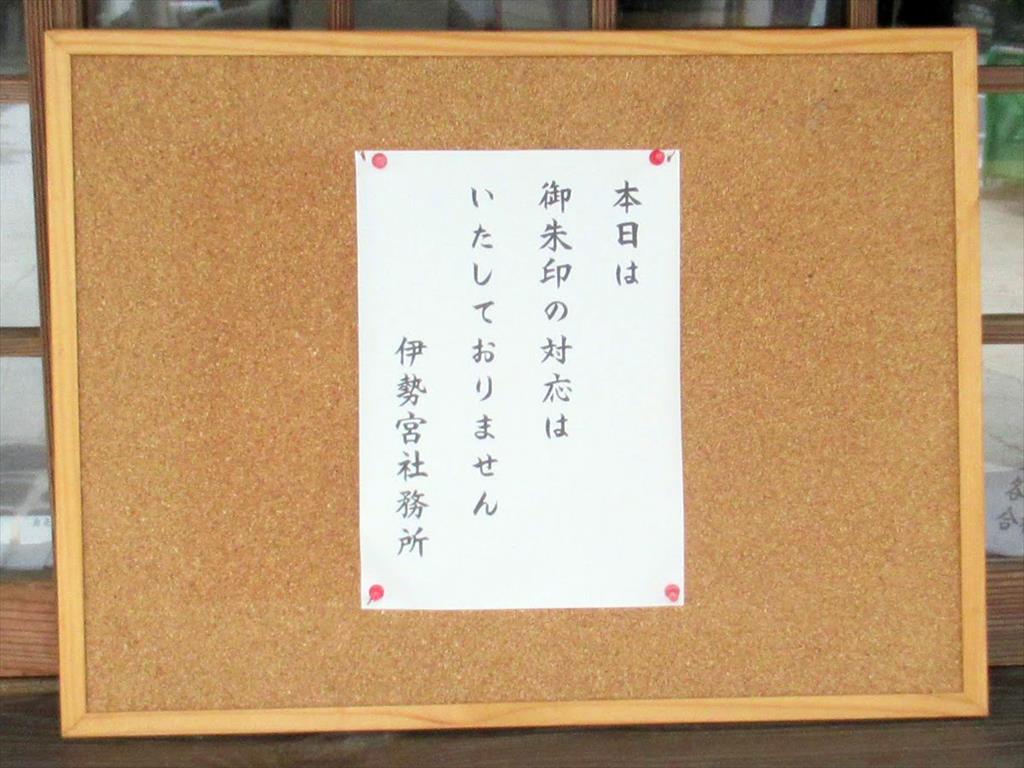 本日は
御朱印の対応は
いたしておりません
伊勢宮社務所